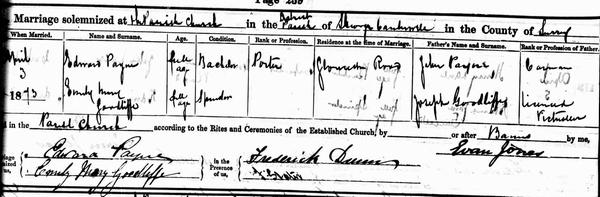 Page 239
Marriage solemnized at the Parish Church in the District Parish of St George Camberwell in the County of Surrey
When Married. Name and Surname. Age. Condition. Rank or Profession. Residence at the time of Marriage. Father's Name and Surname. Rank or Profession of Father.
April 3 1873
Edward Payne full age Bachelor Porter Gloucester Road John Payne Carman
Emily Mary Goodliffe full age Spinster Joseph Goodliffe Licensed Victualler
d in the Parish Church according to the Rites and Ceremonies of the Established Church, by or after Banns by me,
iage nized us, Edward Payne Emily Mary Goodliffe in the Presence of us, Frederick Dunn Evan Jones